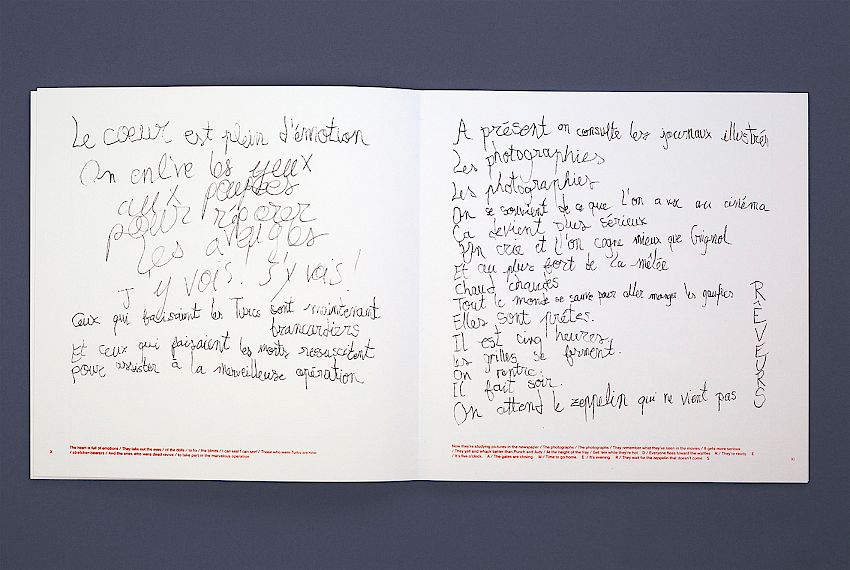 Le coeur est plein d'émotion
On enlève les yeux
aux poupées
pour réparer
les aveugles
J'y vois. J'y vois!
Ceux qui faisaient les Turcs sont maintenant
brancardiers
Et ceux qui faisaient les morts ressuscitent
pour assister à la merveilleuse opération
X
The heart is full of emotions / They take out the eyes / of the dolls / to fix / the blinds / I can see! I can see! / Those who were Turks are now
/ stretcher-bearers / And the ones who were dead revive / to take part in the marvelous operation
A présent on consulte les journaux illustrés
Les photographies
Les photographies
On se souvient de ce que l'on a vu au cinéma
Ça devient plus sérieux
On crie et l'on cogne mieux que Guignol
Et au plus fort de la mêlée
Chaud chaudes
Tout le monde se sauve pour aller manger les gaufres
Elles sont prêtes.
Il est cinq heures
Les grilles se ferment.
On rentre.
Il fait soir.
On attend le zeppelin qui ne vient pas
RÊVEURS
Now they're studying pictures in the newspaper / The photographs / The photographs / They remember what they've seen in the movies / It gets more serious
/ They yell and whack better than Punch and Judy / At the height of the fray / Get 'em while they're hot D / Everyone flees toward the waffles R / They're ready E
/ It's five o'clock. A / The gates are closing. M / Time to go home. E / It's evening. R / They wait for the zeppelin that doesn't come S
XI